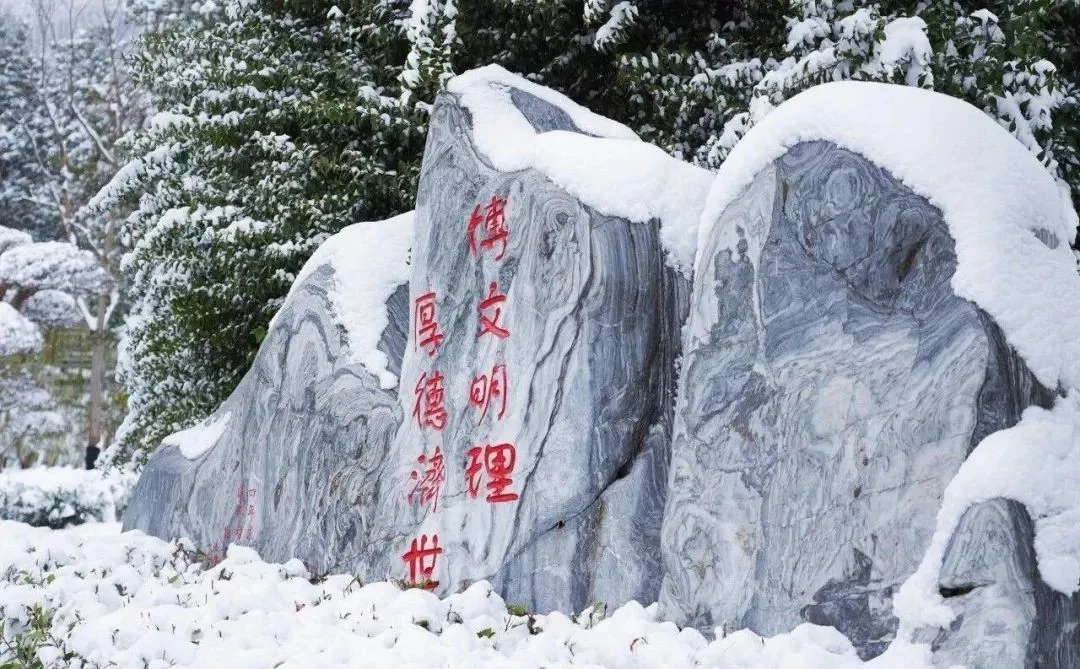 博文明理
厚德濟世